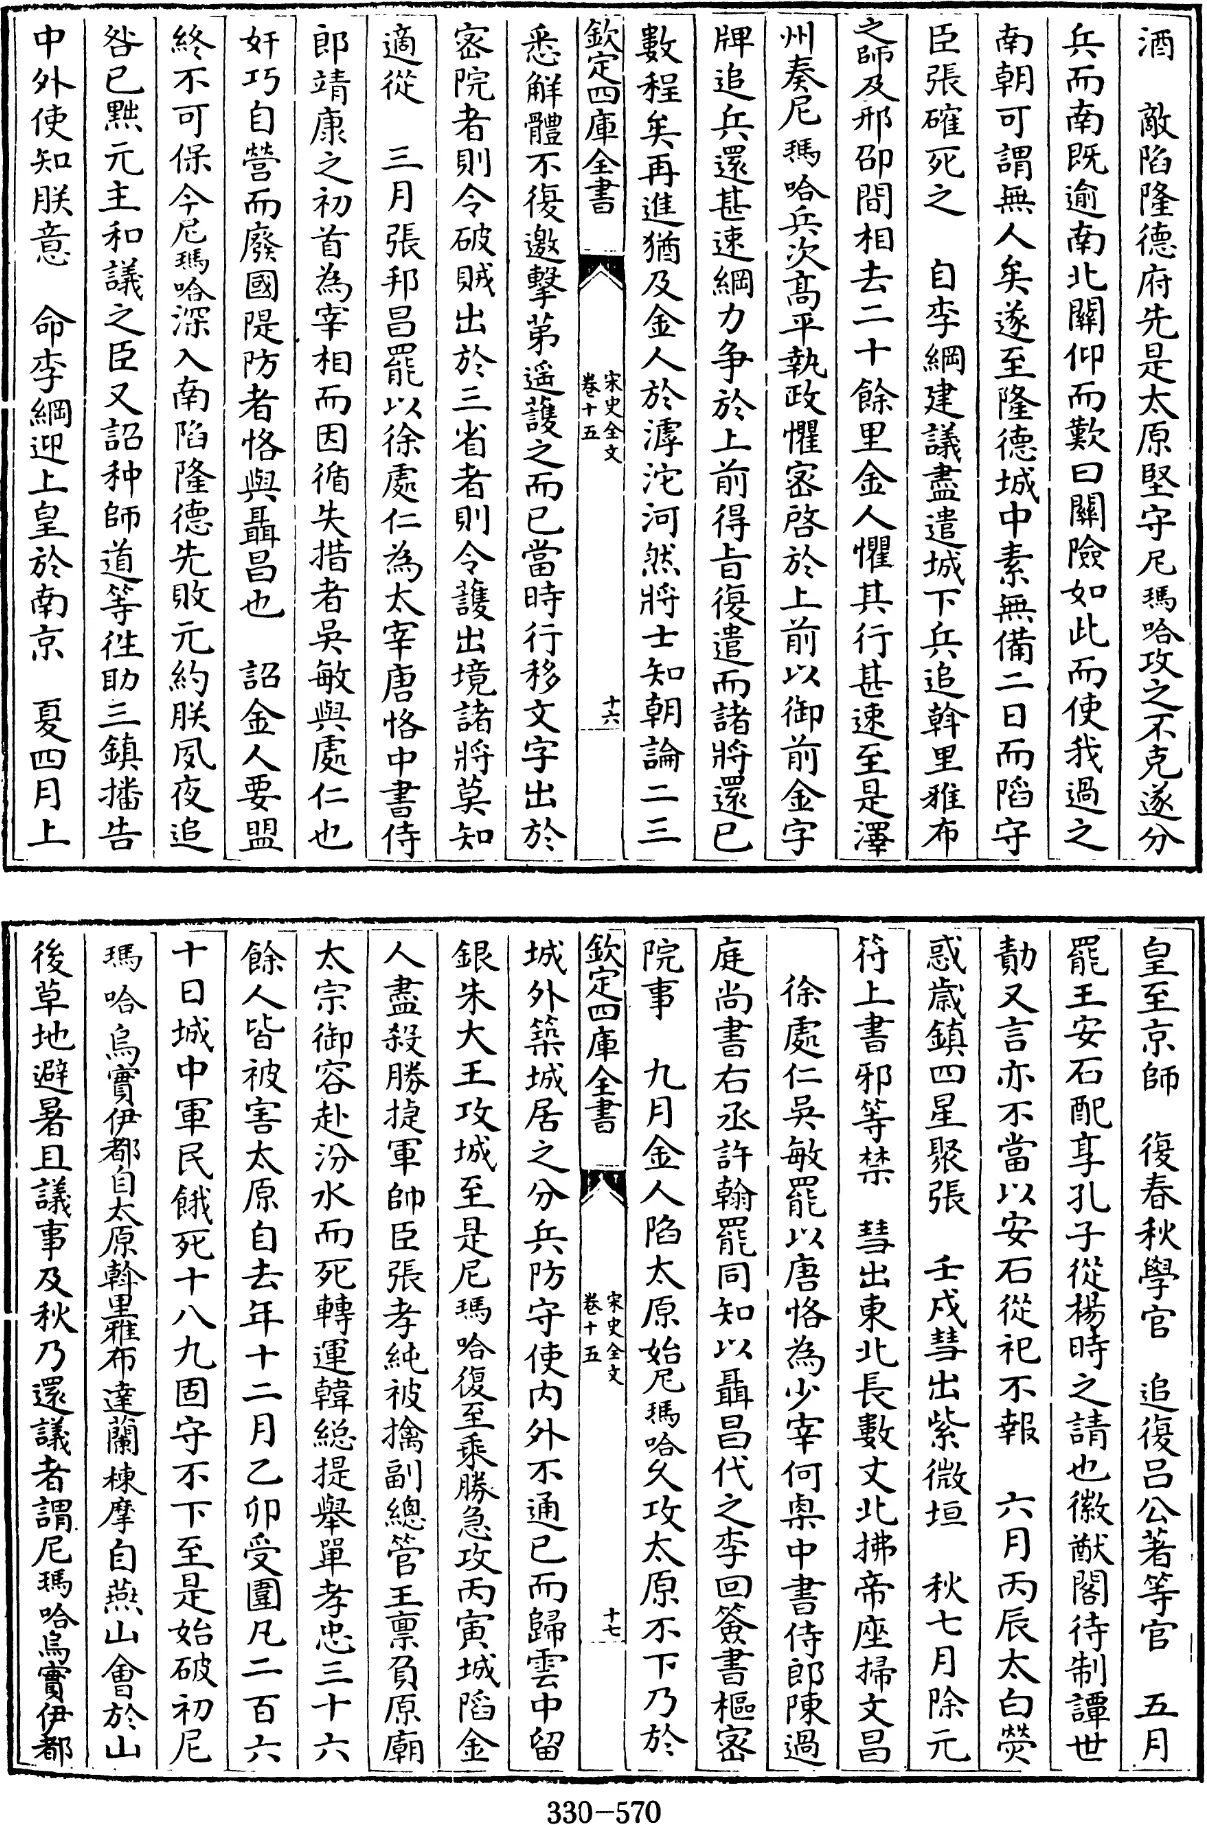 酒　敵陷隆德府先是太原堅守尼瑪哈攻之不克遂分
兵而南既逾南北關仰而歎曰關險如此而使我過之
南朝可謂無人矣遂至隆德城中素無備二日而陷守
臣張確死之　自李綱建議盡遣城下兵追斡里雅布
之師及邢卲間相去二十餘里金人懼其行甚速至是澤
州奏尼瑪哈兵次髙平執政懼密啓於上前以御前金字
牌追兵還甚速綱力争於上前得旨復遣而諸將還已
數程矣再進猶及金人於滹沱河然將士知朝論二三
欽定四庫全書
宋史全文
卷十五
十六
悉解體不復邀擊第遥䕶之而已當時行移文字出於
密院者則令破賊出於三省者則令䕶出境諸將莫知
適從　三月張邦昌罷以徐處仁為太宰唐恪中書侍
郎靖康之初首為宰相而因循失措者吳敏與處仁也
奸巧自營而廢國隄防者恪與聶昌也　詔金人要盟
終不可保今尼瑪哈深入南陷隆德先敗元約朕夙夜追
咎已黜元主和議之臣又詔种師道等徃助三鎮播告
中外使知朕意　命李綱迎上皇於南京　夏四月上
皇至京師　復春秋學官　追復呂公著等官　五月
罷王安石配享孔子從楊時之請也徽猷閣待制譚世
勣又言亦不當以安石從祀不報　六月丙辰太白熒
惑歲鎮四星聚張　壬戌彗出紫微垣　秋七月除元
符上書邪等禁　彗出東北長數丈北拂帝座掃文昌
徐處仁吳敏罷以唐恪為少宰何㮚中書侍郎陳過
庭尚書右丞許翰罷同知以聶昌代之李回簽書樞密
院事　九月金人陷太原始尼瑪哈久攻太原不下乃於
欽定四庫全書
宋史全文
卷十五
十七
城外築城居之分兵防守使内外不通已而歸雲中留
銀朱大王攻城至是尼瑪哈復至乘勝急攻丙寅城陷金
人盡殺勝捷軍帥臣張孝純被擒副總管王禀負原廟
太宗御容赴汾水而死轉運韓総提舉單孝忠三十六
餘人皆被害太原自去年十二月乙卯受圍凡二百六
十日城中軍民餓死十八九固守不下至是始破初尼
瑪哈烏實伊都自太原斡里雅布達蘭棟摩自燕山會於山
後草地避暑且議事及秋乃還議者謂尼瑪哈烏實伊都
330-570